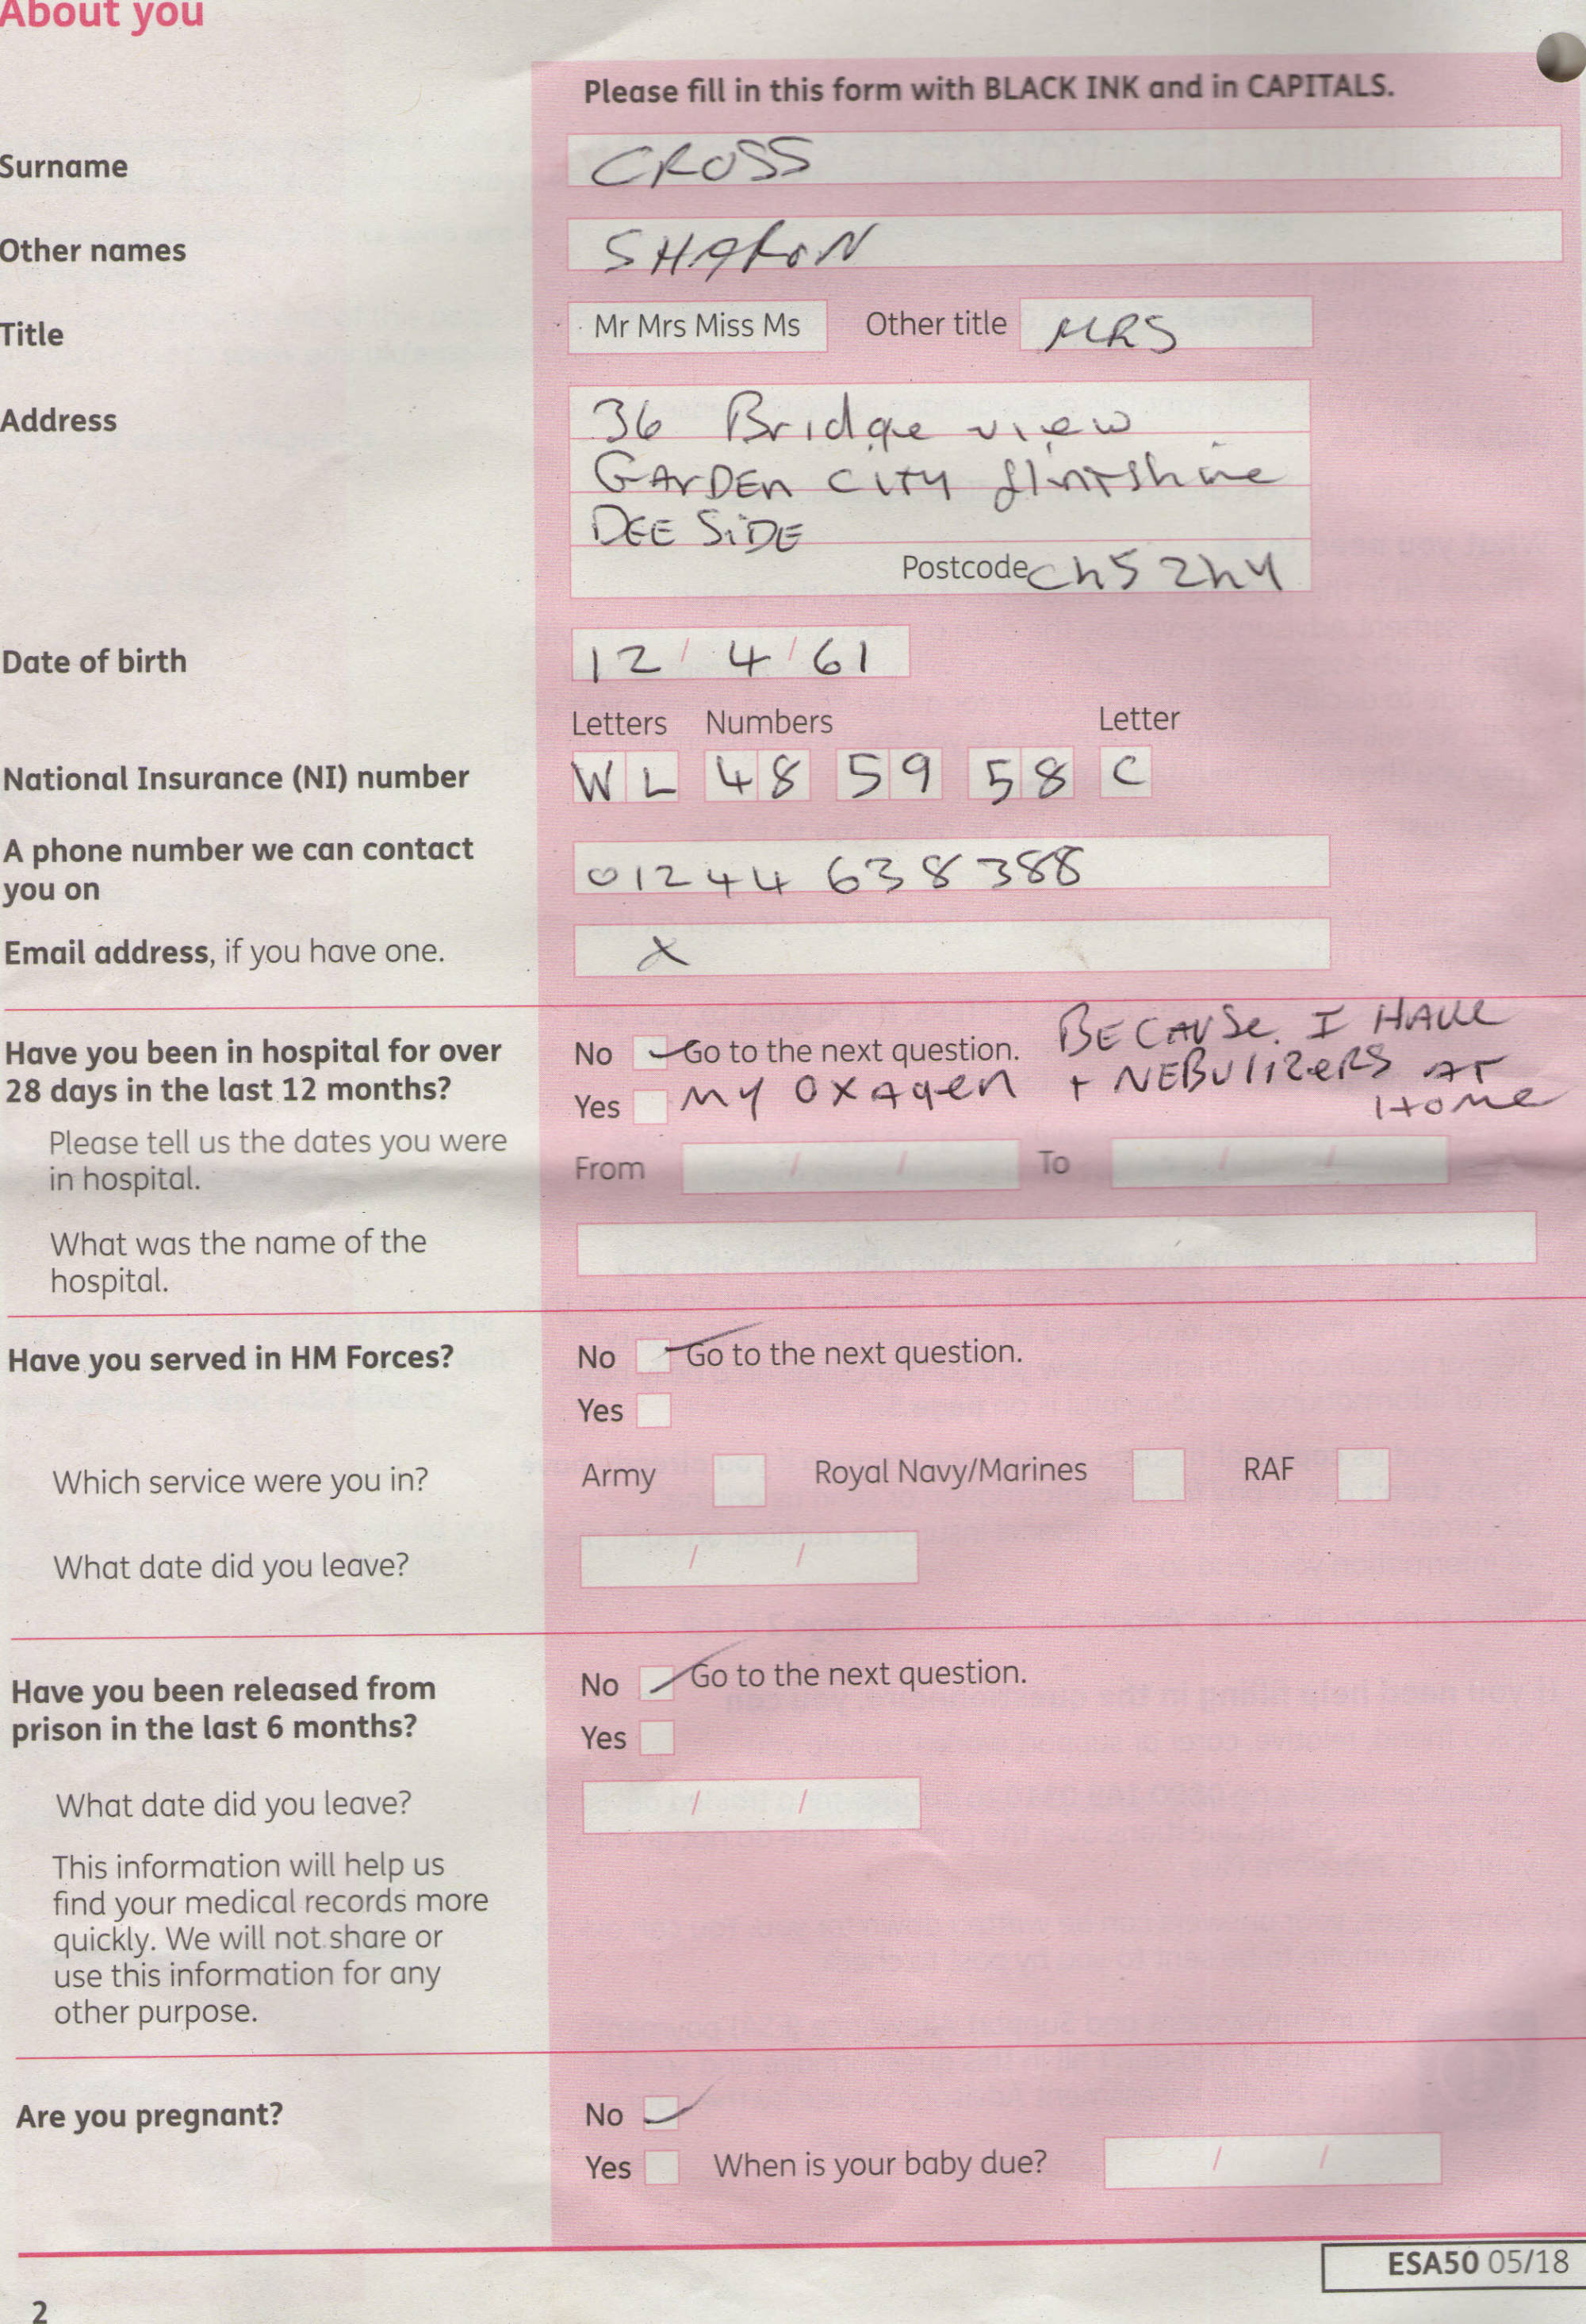 About you
Please fill in this form with BLACK INK and in CAPITALS.
Surname
CROSS
Other names
SHARON
Title
Mr Mrs Miss Ms
Other title
MRS
Address
36 Bridge view
GArDEn CITY flintshire
DEE SiDE
Postcode
Ch5 2hY
Date of birth
12 / 4 / 61
Letters Numbers Letter
National Insurance (NI) number
W L 4 8 5 9 5 8 C
A phone number we can contact
you on
01244 638388
Email address, if you have one.
X
Have you been in hospital for over
28 days in the last 12 months?
No Go to the next question.
BECAUSe. I HAVe
Yes
MY OXAgen + NEBUlIZeRS AT
HOMe
Please tell us the dates you were
in hospital.
From / / To / /
What was the name of the
hospital.
Have you served in HM Forces?
No Go to the next question.
Yes
Which service were you in?
Army Royal Navy/Marines RAF
What date did you leave?
/ /
Have you been released from
prison in the last 6 months?
No Go to the next question.
Yes
What date did you leave?
/ /
This information will help us
find your medical records more
quickly. We will not share or
use this information for any
other purpose.
Are you pregnant?
No
Yes When is your baby due? / /
ESA50 05/18
2